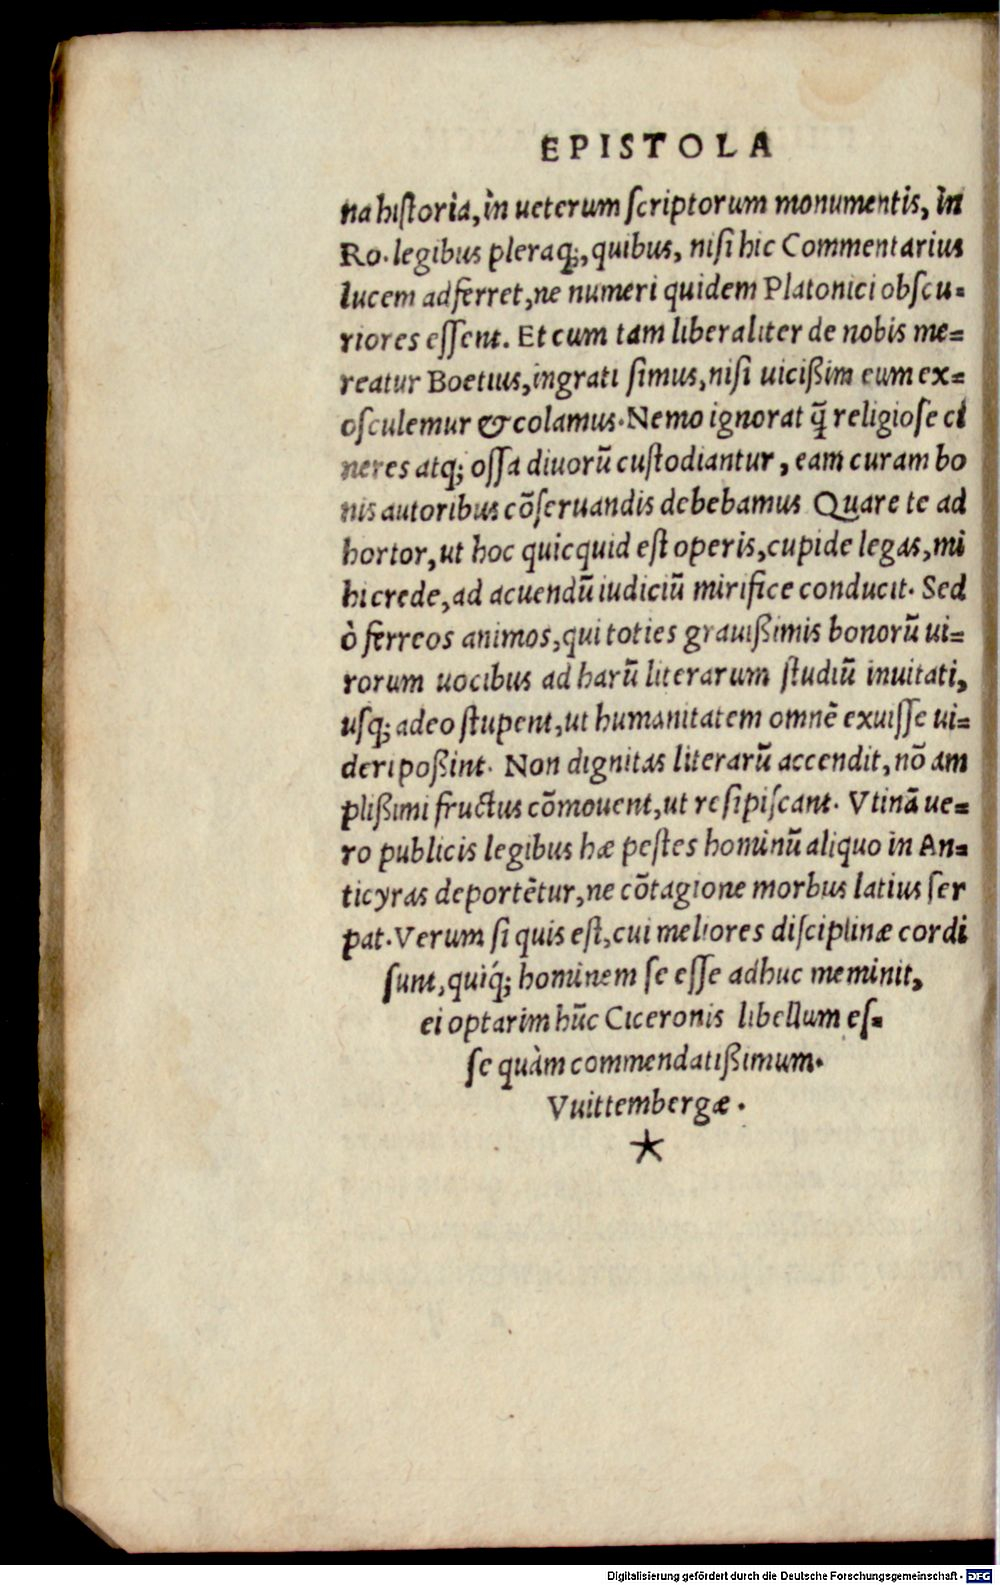 EPISTOLA
na hiſtoria, in ueterum ſcriptorum monumentis, in
Ro. legibus pleraq;, quibus, niſi hic Commentarius
lucem adferret, ne numeri quidem Platonici obſcu-
riores eſſent. Et cum tam liberaliter de nobis me-
reatur Boetius, ingrati ſimus, niſi uicißim eum ex-
oſculemur & colamus. Nemo ignorat q̃ religioſe ci
neres atq; oſſa diuorũ cuſtodiantur, eam curam bo
nis autoribus cõſeruandis debebamus Quare te ad
hortor, ut hoc quicquid eſt operis, cupide legas, mi
hi crede, ad acuendũ iudiciũ mirifice conducit. Sed
ò ferreos animos, qui toties grauißimis bonorũ ui-
rorum uocibus ad harũ literarum ſtudiũ inuitati,
uſq; adeo ſtupent, ut humanitatem omnẽ exuiſſe ui-
deri poßint. Non dignitas literarũ accendit, nõ am
plißimi fructus cõmouent, ut reſipiſcant. Vtinã ue-
ro publicis legibus hæ peſtes hominũ aliquo in An-
ticyras deportẽtur, ne cõtagione morbus latius ſer
pat. Verum ſi quis eſt, cui meliores diſciplinæ cordi
ſunt, quiq́; hominem ſe eſſe adhuc meminit,
ei optarim hũc Ciceronis libellum eſ-
ſe quàm commendatißimum.
Vuittembergæ.
Digitalisierung gefördert durch die Deutsche Forschungsgemeinschaft - DFG